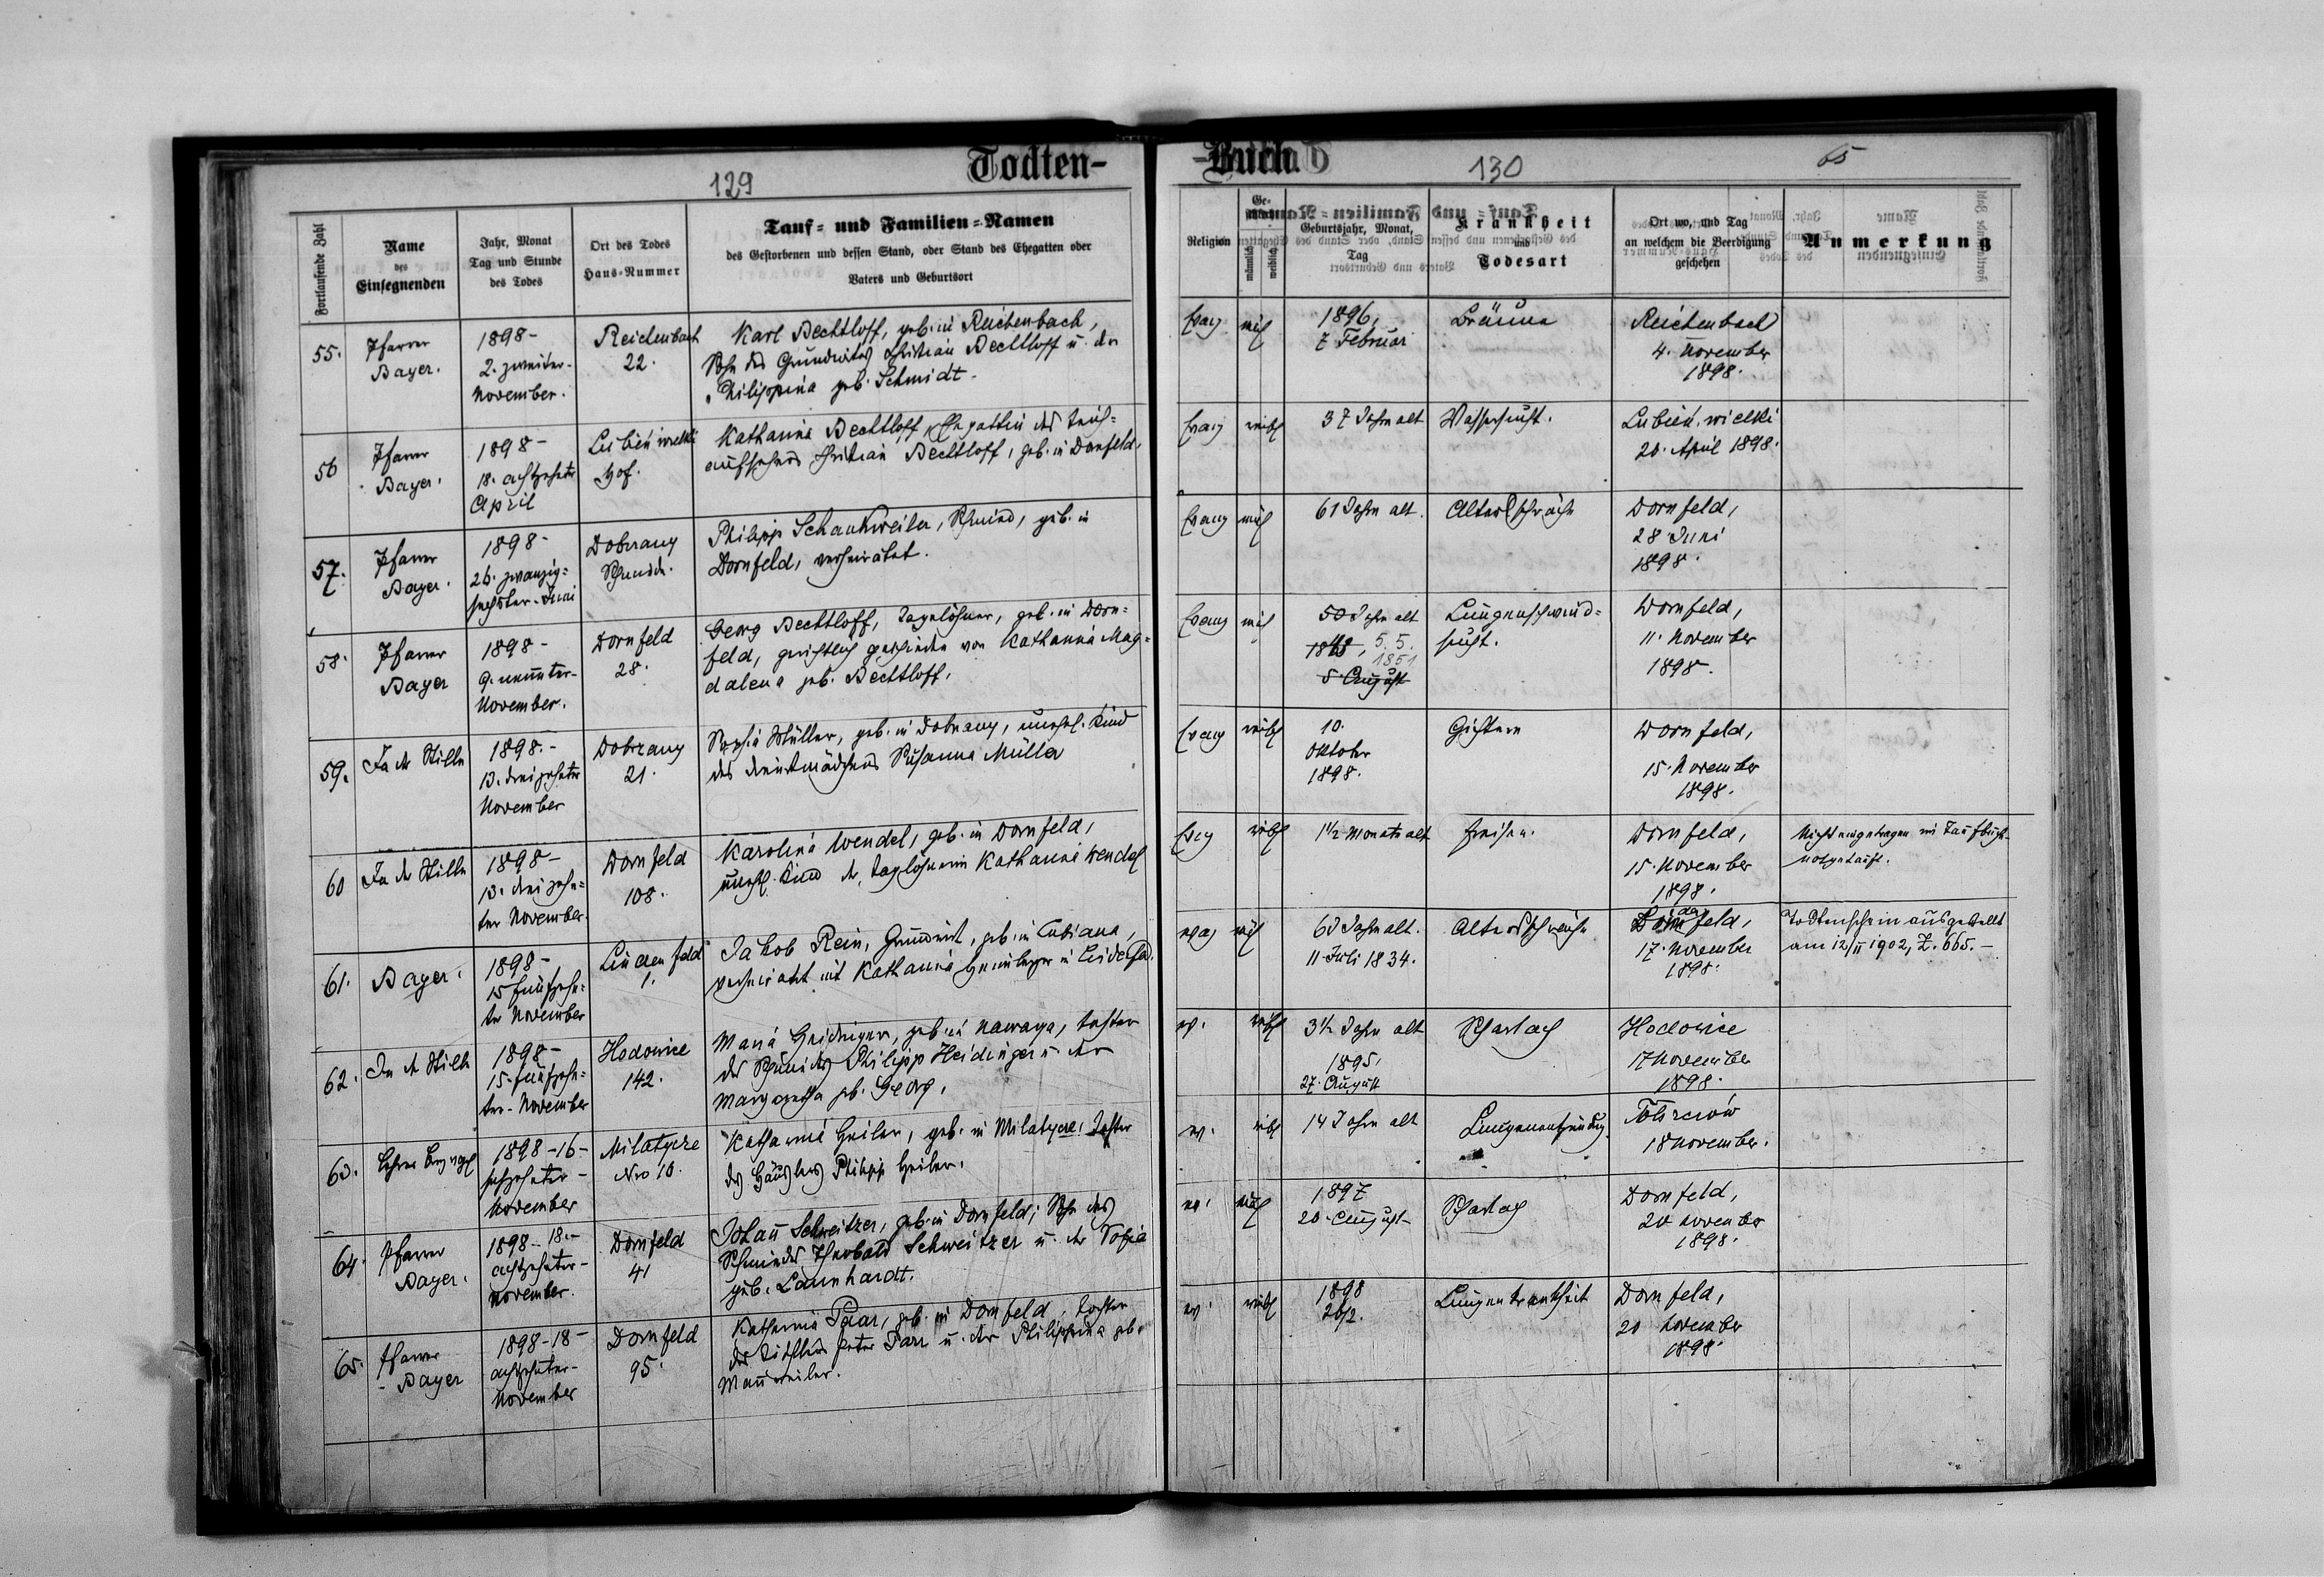 Todten-
129
Fortlaufende Zahl
Name
des
Einsegnenden
Jahr, Monat
Tag und Stunde
des Todes
Ort des Todes
Haus-Nummer
Tauf- und Familien-Namen
des Gestorbenen und dessen Stand, oder Stand des Ehegatten oder
Vaters und Geburtsort
55.
Pfarrer
Bayer.
1898-
2. zweiter-
November.
Reichenbach
22.
Karl Bechtloff, geb. in Reichenbach,
Sohn des Grundwirtes Christian Bechtloff u. der
Philippina geb. Schmidt.
56
Pfarrer
Bayer.
1898-
18. achtzehnter
April
Lubień wielki
Hof.
Katharina Bechtloff, Ehegattin des Teich-
aufsehers Christian Bechtloff, geb. in Dornfeld.
57.
Pfarrer
Bayer.
1898-
26. zwanzig-
sechster Juni
Dobrzany
Schmiede.
Philipp Schankweiler, Schmied, geb. in
Dornfeld, verheiratet.
58.
Pfarrer
Bayer
1898-
9. neunter-
November.
Dornfeld
28.
Georg Bechtloff, Tagelöhner, geb. in Dorn-
feld, gerichtlich geschieden von Katharina Mag-
dalena geb. Bechtloff.
59.
In der Stille
1898.-
13. dreizehnter
November
Dobrzany
21.
Sophia Müller, geb. in Dobrzany, unehel. Kind
des Dienstmädchens Susanna Müller
60
In der Stille
1898-
13. dreizehn-
ter November.
Dornfeld
108.
Karolina Wendel, geb. in Dornfeld,
unehl. Kind der Taglöhnerin Katharina Wendel
61.
Bayer.
1898-
15 fünfzehn-
ter November
Lindenfeld
1.
Jakob Rein, Grundwirt, geb. in Lubiana,
verheiratet mit Katharina in Lindenfeld.
62.
In der Stille
1898-
15. fünfzehn-
ter November
Hodowice
142.
Maria Heidinger, geb. in Nawarya, Tochter
des Schmiedes Philipp Heidinger u. der
Margaretha geb. Georg.
63.
Lehrer
1898-16-
sechzehnter-
November
Milatycze
Nro 10.
Katharina Heiler, geb. in Milatycze, Tochter
des Häuslers Philipp Heiler.
64.
Pfarrer
Bayer.
1898-18.-
achtzehnter-
November.
Dornfeld
41
Johann Schweitzer, geb. in Dornfeld; Sohn des
Schmiedes Theobald Schweitzer u. der Sofia
geb. Launhardt.
65.
Pfarrer
Bayer
1898-18-
achtzehnter-
November
Dornfeld
95.
Katharina Paar, geb. in Dornfeld, Tochter
des Tischlers Peter Parr u. der Philippina geb.
Manweiler.
-Buch.
130
65
Religion
Ge-
männlich
weiblich
Geburtsjahr, Monat,
Tag
Krankheit
und
Todesart
Ort wo, und Tag
an welchem die Beerdigung
geschehen
Anmerkung
Evang
ml
1896,
7 Februar
Bräune
Reichenbach
4. November
1898.
Evang
weibl
37 Jahre alt
Wassersucht.
Lubień wielki
20. April 1898.
Evang
ml
61 Jahre alt.
Altersschwäche
Dornfeld,
28 Juni
1898.
Evang
ml
50 Jahre alt
5.5.
1851
5 August
Lungenschwind-
sucht.
Dornfeld,
11. November
1898.
Evang
weibl
10.
Oktober
1898.
Gichtern
Dornfeld,
15. November
1898.
Evg
weibl
1½ Monate alt
Fraisen.
Dornfeld,
15. November
1898.
Nicht eingetragen im Taufbuch-
notgetauft.
evag
ml
63 Jahre alt.
11 Juli 1834.
Altersschwäche
feld,
17. November
1898.
Todtenschein ausgestellt
am 12/II 1902, Z. 665.-
ev.
weibl
3½ Jahre alt
1895.
27. August
Scharlach
Hodowice
17 November
1898.
ev.
wbl
14 Jahre alt
Lungenentzündung
18 November.
ev.
ml
1897
20. August
Scharlach
Dornfeld,
20 November
1898.
ev.
weibl
1898
26/2.
Lungenkrankheit
Dornfeld,
20 November
1898.